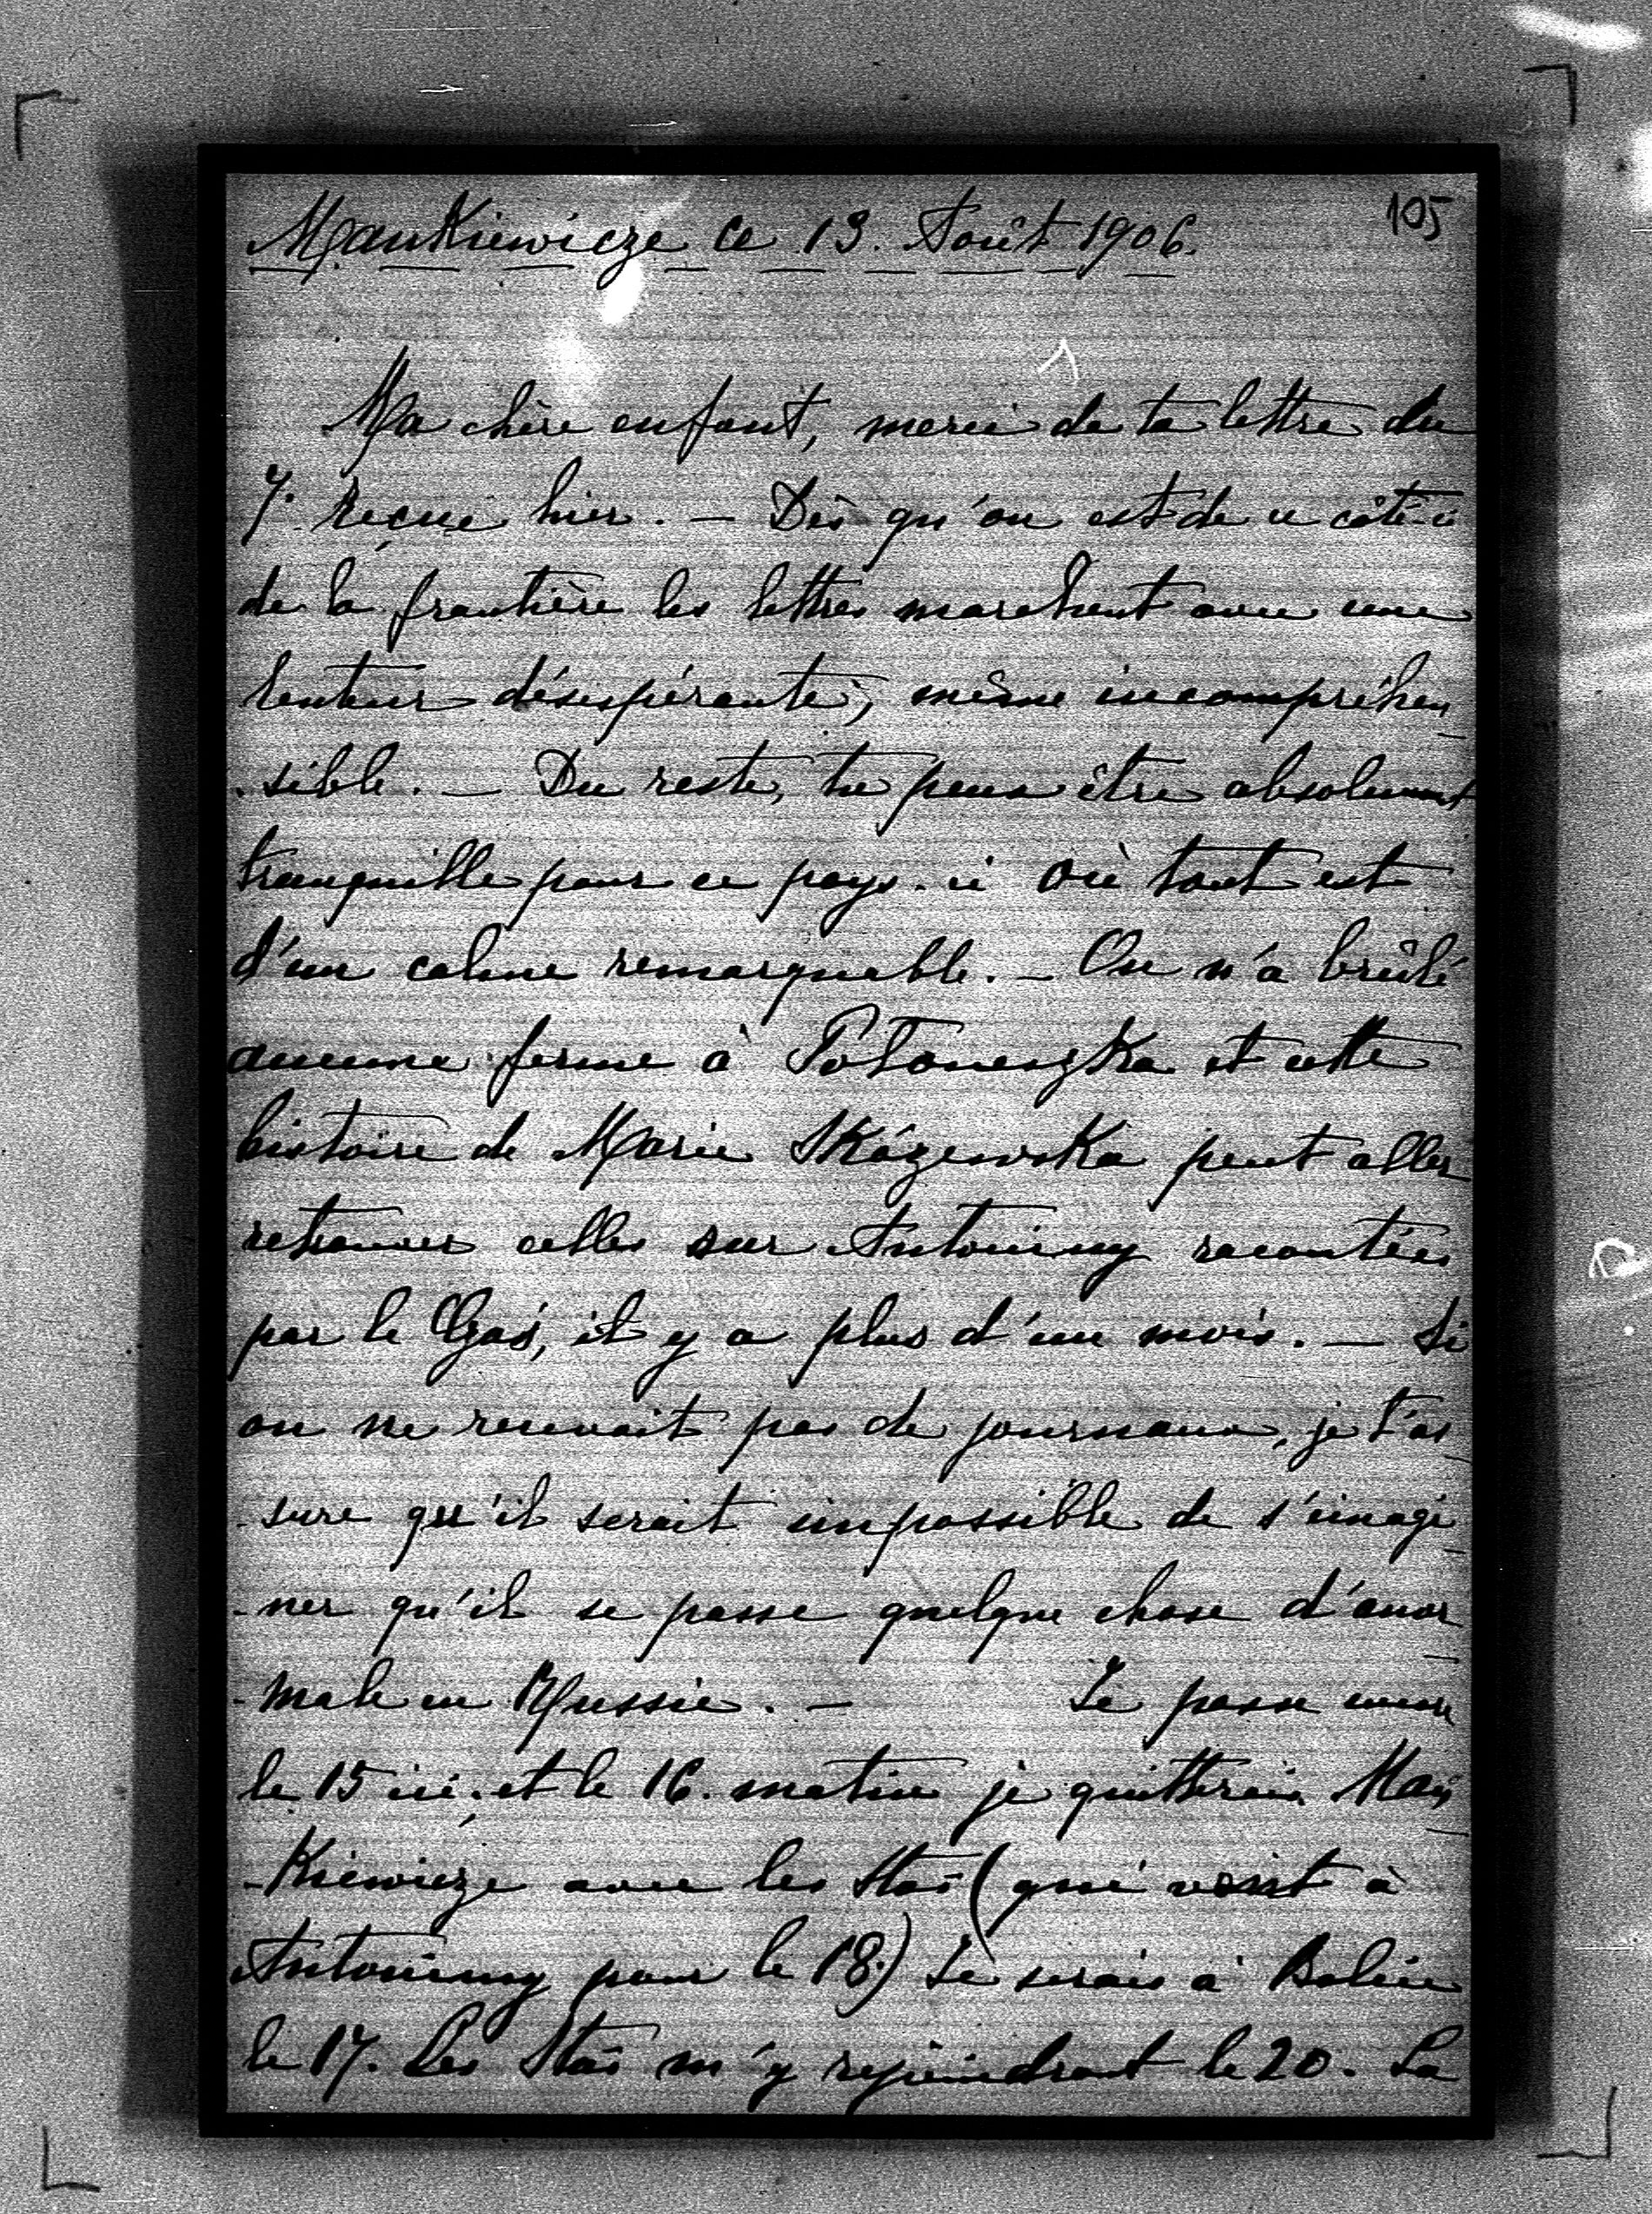 105
Mankiewicze ce 13. Août 1906.
Ma chère enfant, merci de ta lettre du
7. reçue hier. — Dès qu'on est de ce côté-ci
de la frontière les lettres marchent avec une
lenteur désespérante, même incompréhen
-sible. — Du reste, tu peux être absolument
tranquille pour ce pays-ci où tout est
d'un calme remarquable. — On n'a brûlé
aucune ferme à et cette
histoire de Marie peut aller
retrouver celles sur Antoniny racontées
par le il y a plus d'un mois. — Si
on ne recevait pas de journaux, je t'as
-sure qu'il serait impossible de s'imagi
-ner qu'il se passe quelque chose d'anor
-mal en Russie. — Je passe encore
le 15 ici, et le 16. matin je quitterai Man
-kiewicze avec les Staś (qui vont à
Antoniny pour le 18.) Je serai à
le 17. Les Staś m'y rejoindront le 20. La